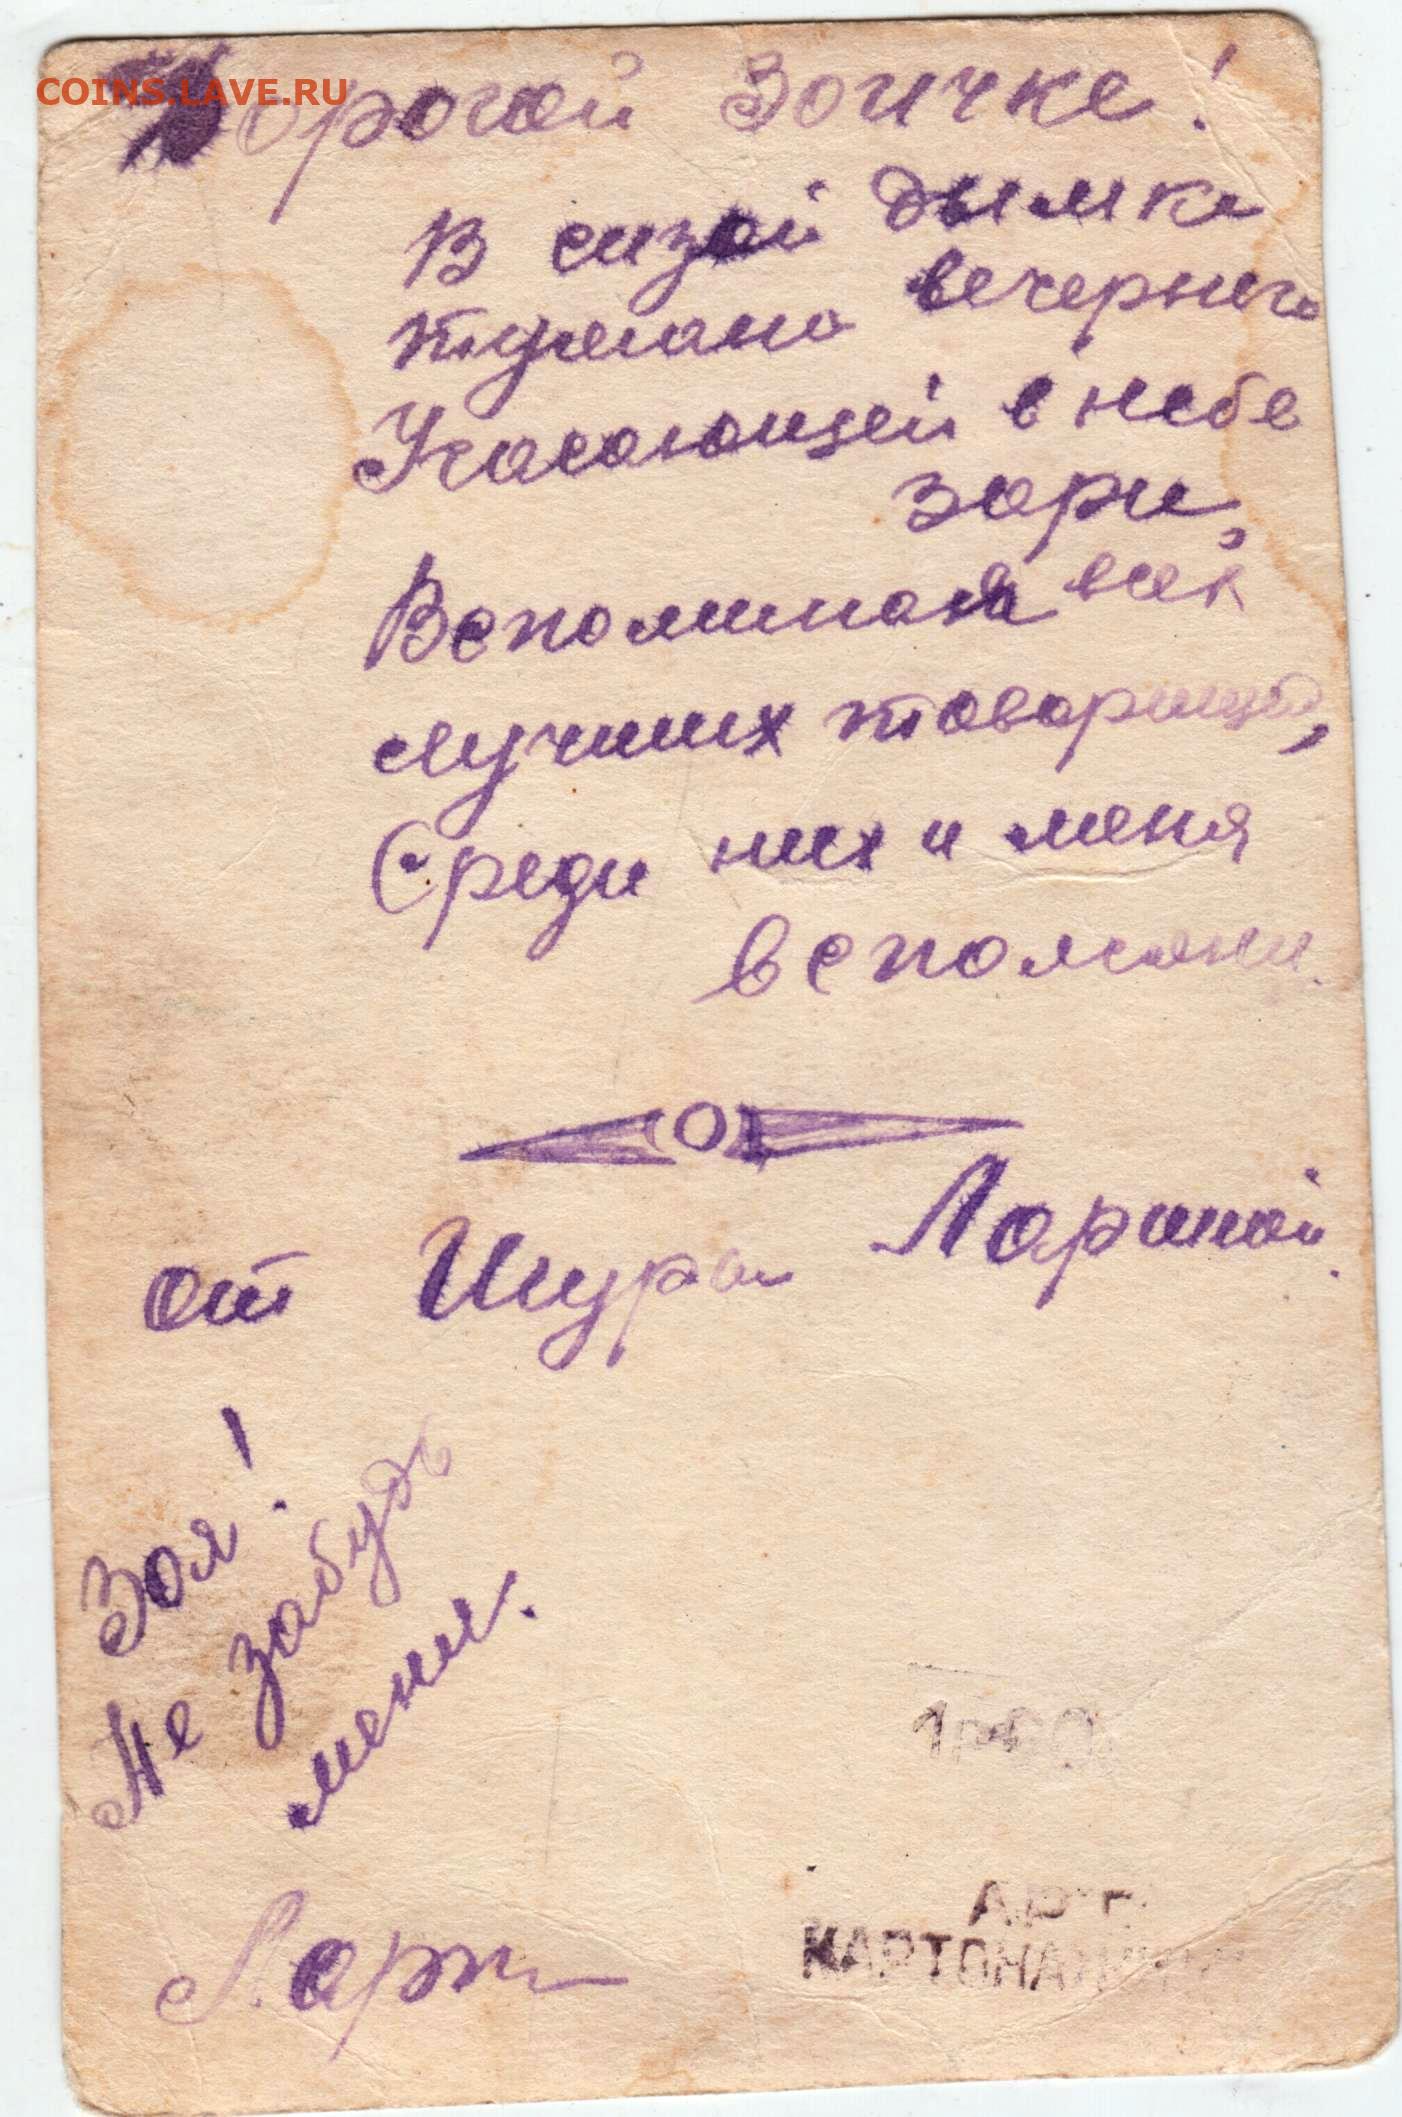 COINS.LAVE.RU
Дорогой Зоичке!
В сизой дымке
тумана вечернего
Угасающей в небе
зари,
Вспоминая всех
лучших товарищей,
Среди них и меня
вспомяни.
от Шуры Лариной.
Зоя!
Не забудь
меня.
Ларин
КАРТОНАЖНИК